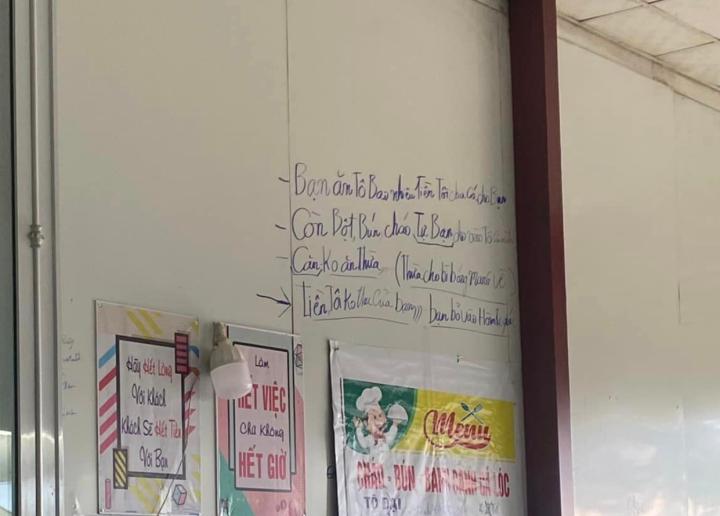 - Bạn ăn Tô Bao nhiêu Tiền Tôi chia Cá cho Bạn
- Còn Bột, Bún, cháo, Tự Bạn cho vào Tô
- Cần Ko ăn Thừa (Thừa cho bì bóng Mang về)
Tiền, Tôi ko thu Của bạn))) bạn bỏ vào Hòm
Hãy Hết Lòng
Với Khách
Khách Sẽ Hết Tiền
Với Bạn
Làm
HẾT VIỆC
Chứ Không
HẾT GIỜ
Menu
CHÁO - BÚN - BÁNH CANH CÁ LÓC
TÔ ĐẠI